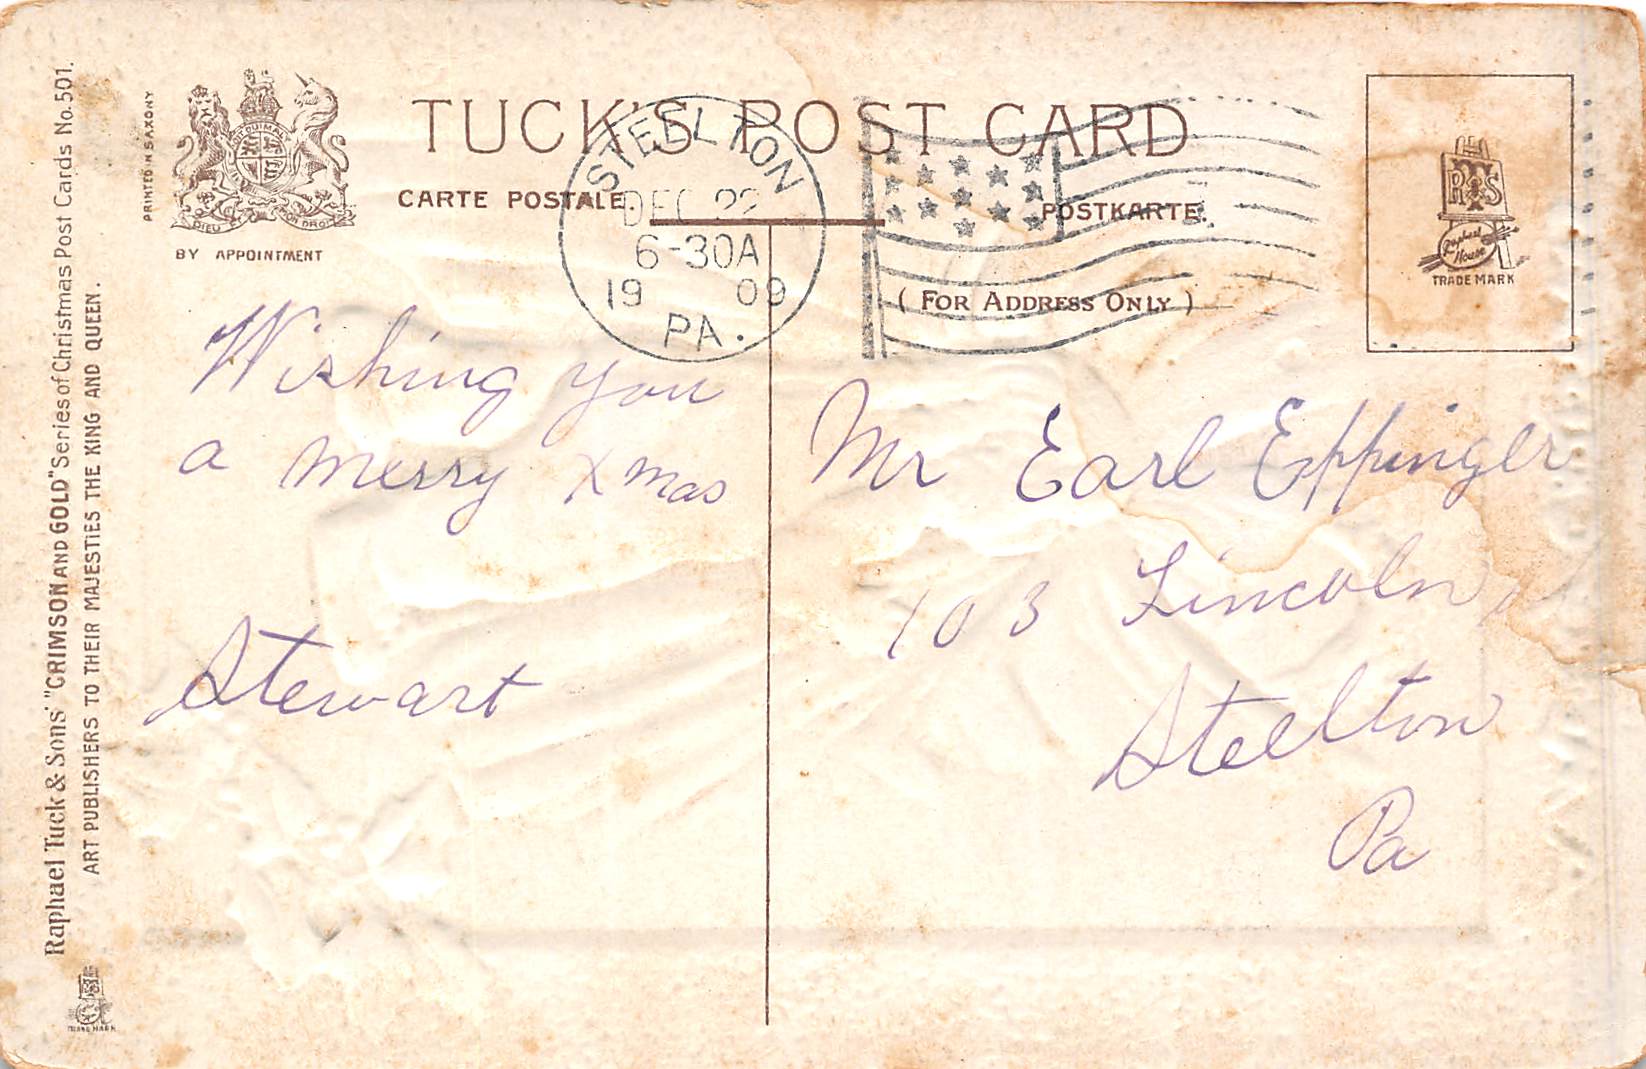 TUCK'S POST CARD
CARTE POSTALE.
POSTKARTE.
( FOR ADDRESS ONLY )
PRINTED IN SAXONY
DIEU ET MON DROIT
BY APPOINTMENT
STEELTON
DEC 22
6-30A
1909
PA.
TRADE MARK
Raphael House
Wishing you
a merry Xmas
Stewart
Mr Earl Eppinger
103 Lincoln
Steelton
Pa
Raphael Tuck & Sons' "CRIMSON AND GOLD" Series of Christmas Post Cards No. 501.
ART PUBLISHERS TO THEIR MAJESTIES THE KING AND QUEEN.
TRADE MARK